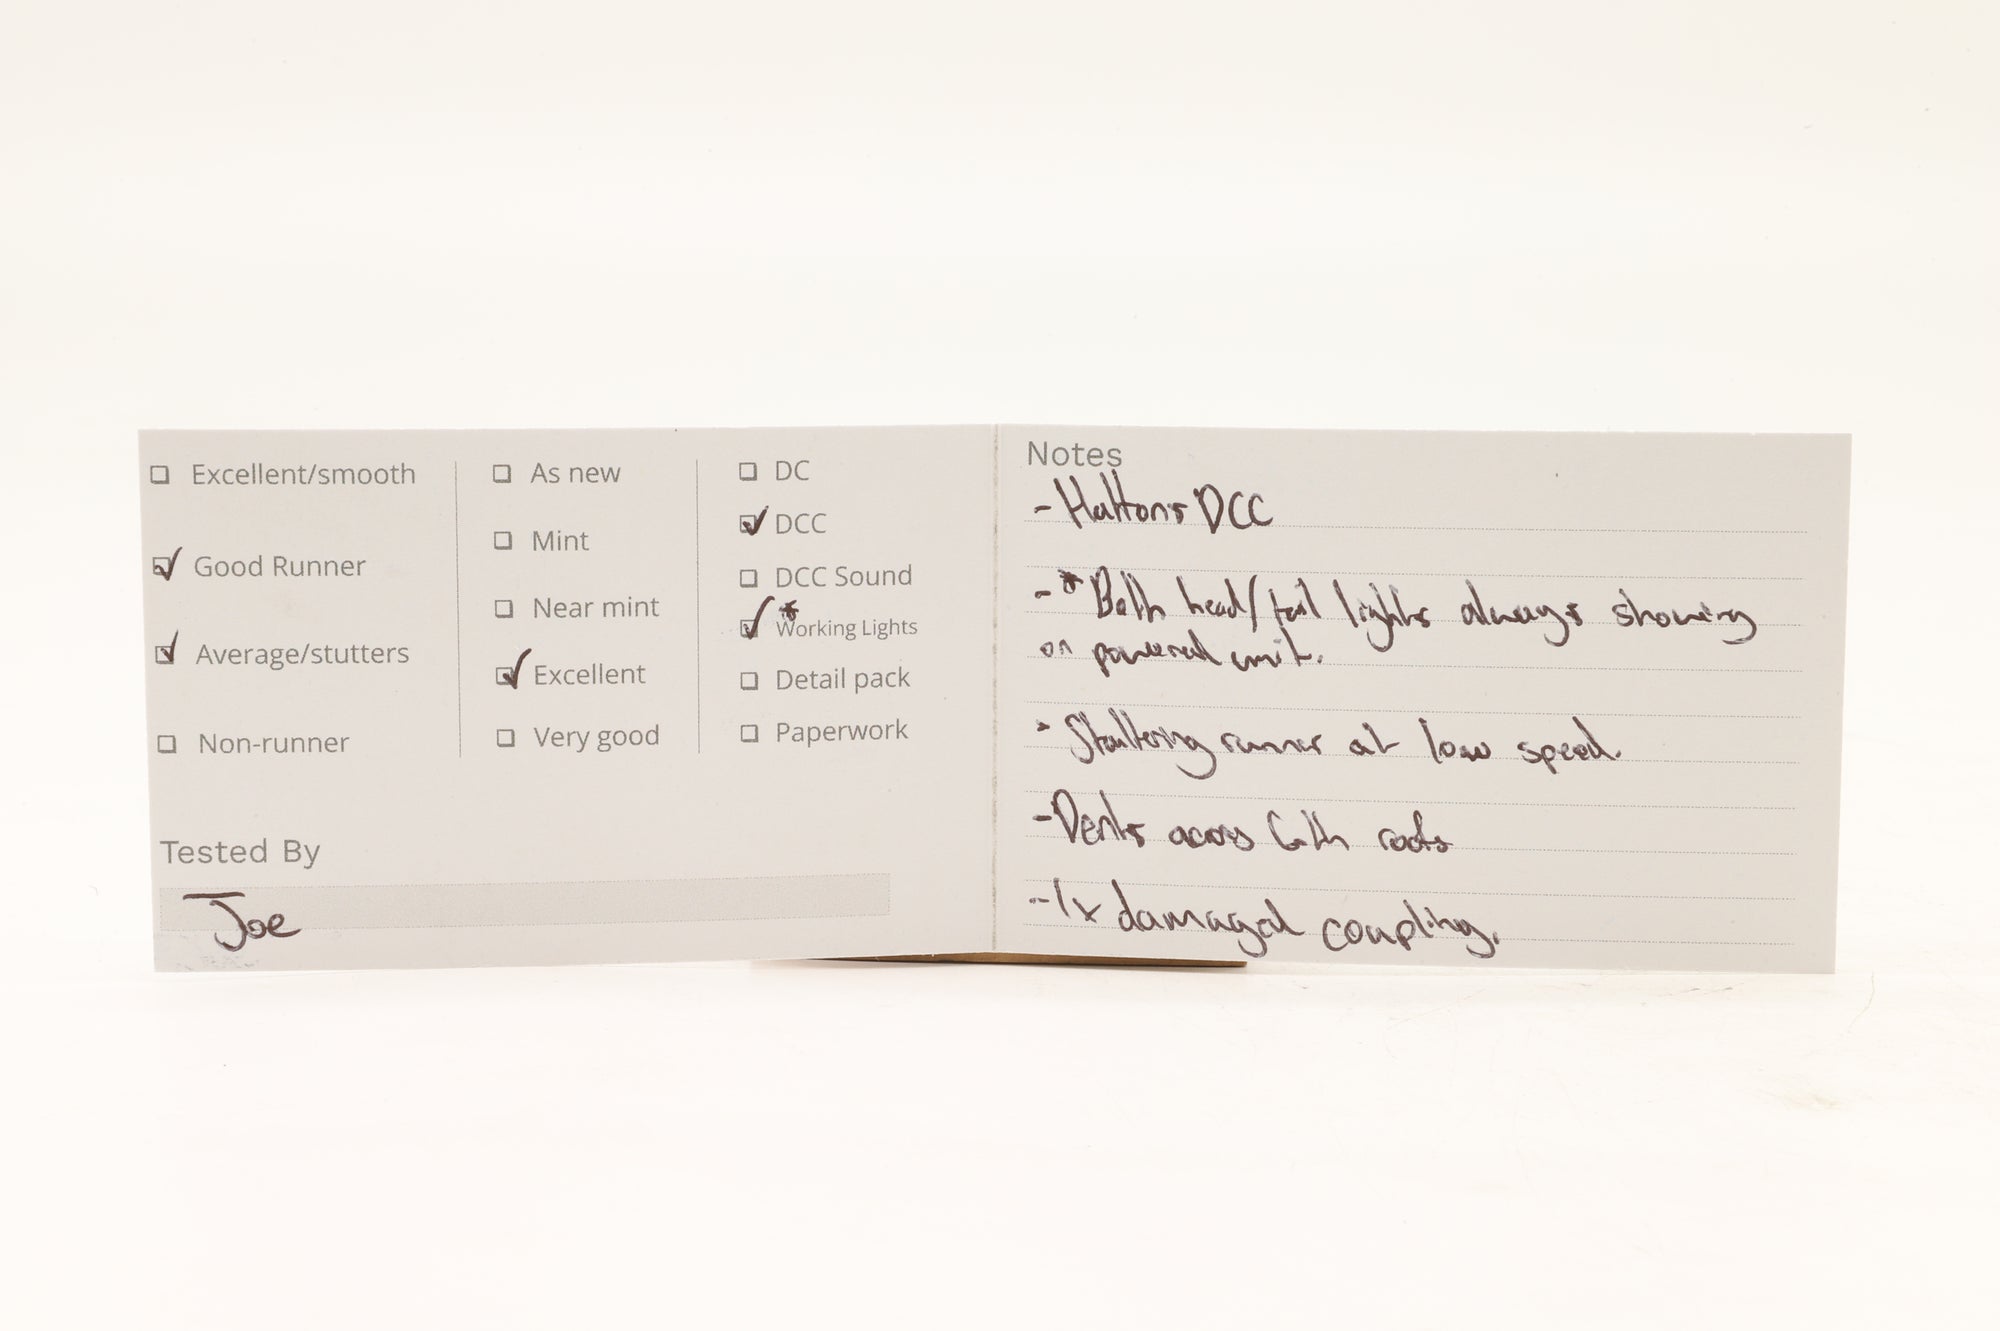 ☐ Excellent/smooth
☑ Good Runner
☑ Average/stutters
☐ Non-runner
☐ As new
☐ Mint
☐ Near mint
☑ Excellent
☐ Very good
☐ DC
☑ DCC
☐ DCC Sound
☑ *Working Lights
☐ Detail pack
☐ Paperwork
Tested By
Joe
Notes
- Hattons DCC
- * Both head/tail lights always showing
on powered unit.
- Stuttering runner at low speed.
- Dents across both roofs
- 1x damaged coupling.